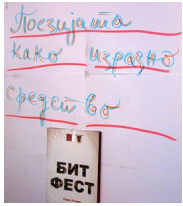 Поезијата
како изразно
средство
БИТ
ФЕСТ